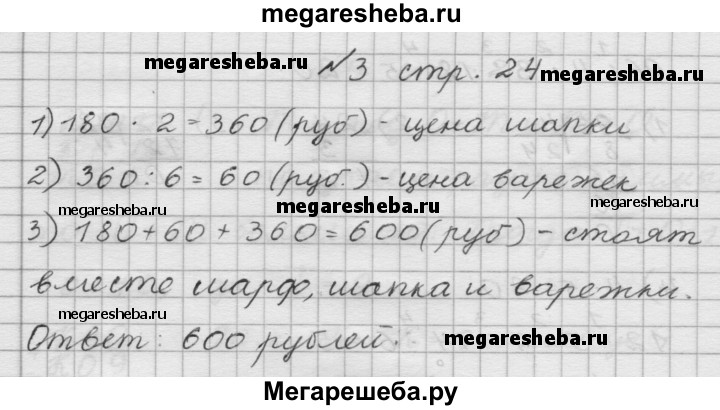 megaresheba.ru
megaresheba.ru №3 стр. 24 megaresheba.ru
1) 180 · 2 = 360 (руб) - цена шапки
2) 360 : 6 = 60 (руб.) - цена варежек
megaresheba.ru megaresheba.ru megaresheba.ru
3) 180 + 60 + 360 = 600 (руб) - стоят
вместе шарф, шапка и варежки.
Ответ: 600 рублей. megaresheba.ru
Мегарешеба.ру